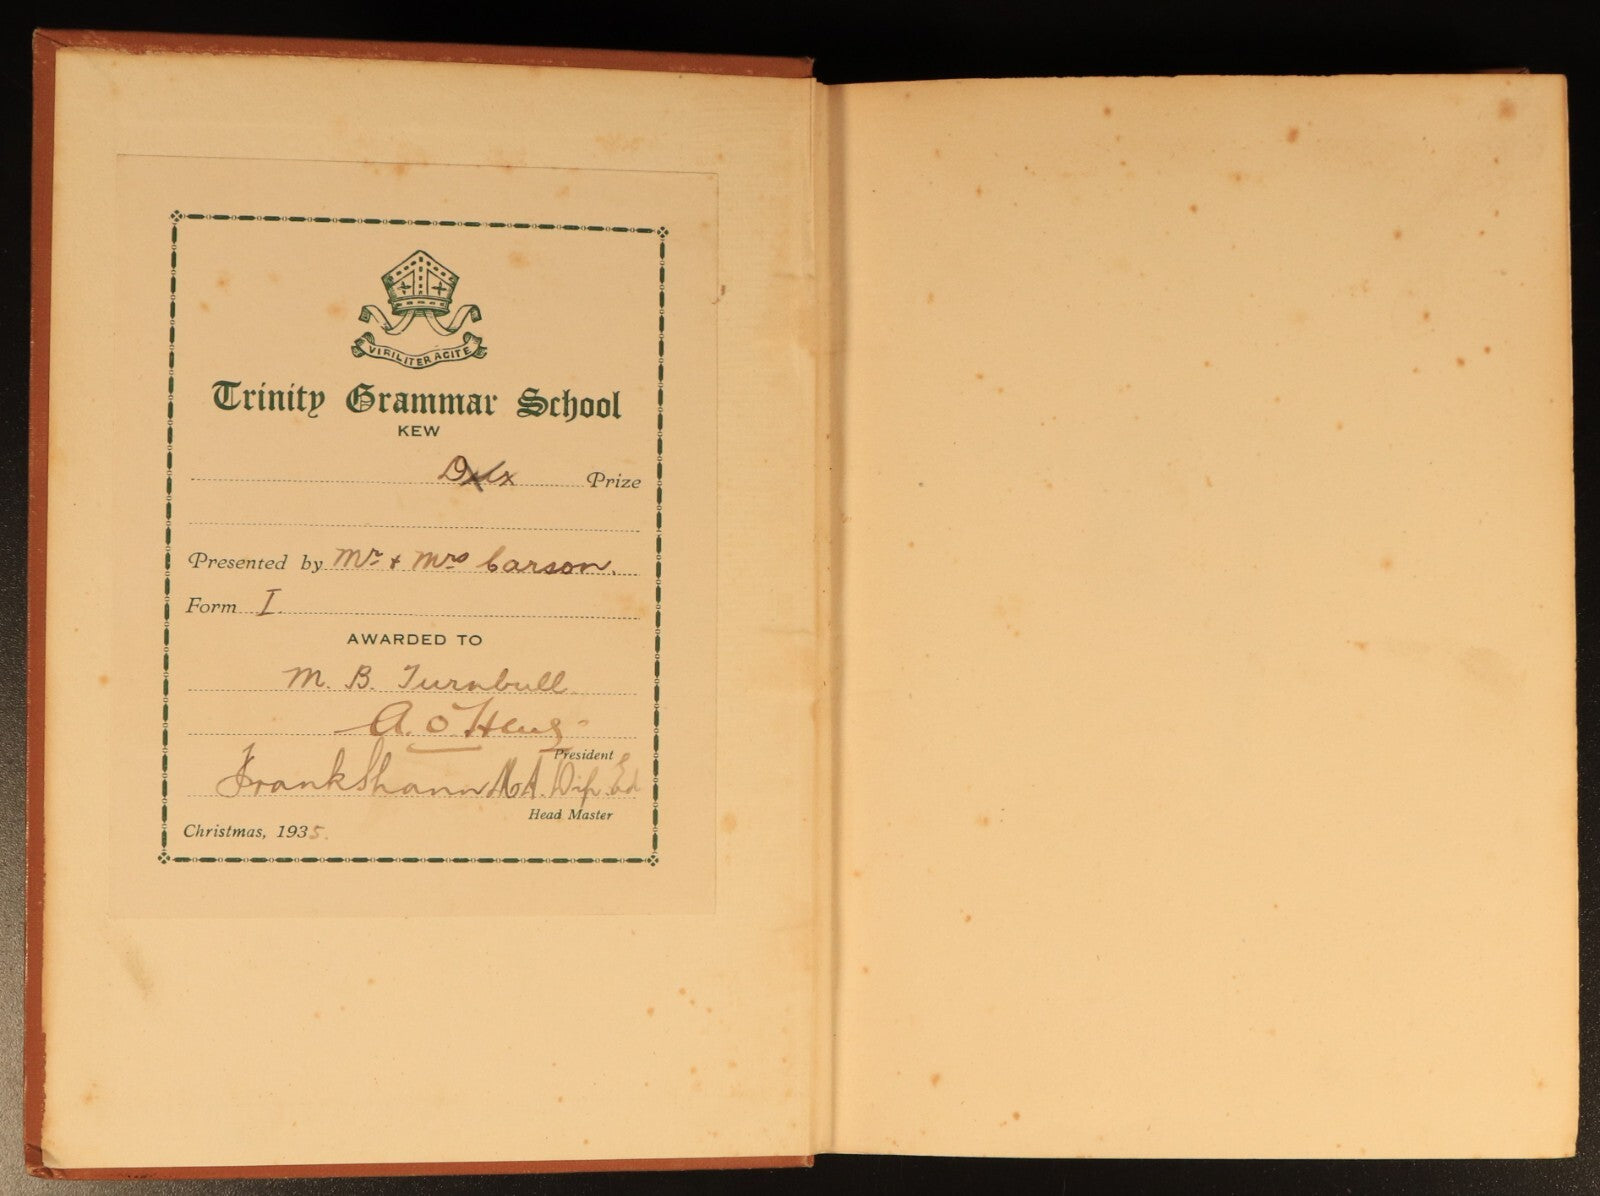 VIRILITER AGITE
Trinity Grammar School
KEW
Dux Prize
Presented by Mr & Mrs Carson.
Form I.
AWARDED TO
M. B. Turnbull
President
Frank Shann M.A. Dip. Ed
Head Master
Christmas, 1935.